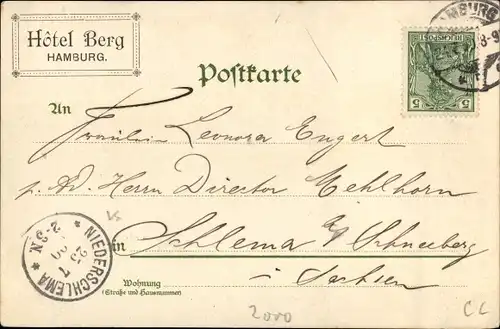 Hôtel Berg
HAMBURG.
Postkarte
HAMBURG
8-9
REICHSPOST
5 5
An
Fräulein Leonora Engert
p. Ad. Herrn Director Mehlhorn
in Schlema b/ Schneeberg
i. Sachsen
Wohnung
(Straße und Hausnummer)
* NIEDERSCHLEMA *
25 7
2-3N.
2000
CL